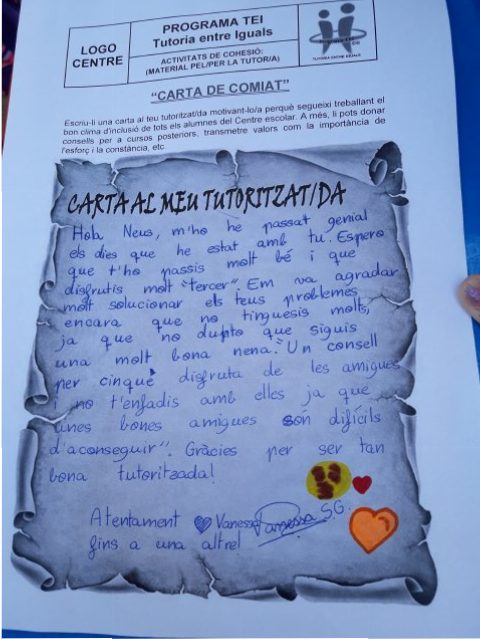 LOGO
CENTRE
PROGRAMA TEI
Tutoria entre Iguals
ACTIVITATS DE COHESIÓ:
(MATERIAL PEL/PER LA TUTOR/A)
TUTORIA ENTRE IGUALS
"CARTA DE COMIAT"
Escriu-li una carta al teu tutoritzat/da motivant-lo/a perquè segueixi treballant el
bon clima d'inclusió de tots els alumnes del Centre escolar. A més, li pots donar
consells per a cursos posteriors, transmetre valors com la importància de
l'esforç i la constància, etc.
CARTA AL MEU TUTORITZAT/DA
Hola Neus, m'ho he passat genial
els dies que he estat amb tu. Espero
que t'ho passis molt bé i que
disfrutis molt "tercer". Em va agradar
molt solucionar els teus problemes
encara que no tinguesis molts,
ja que no dupto que siguis
una molt bona nena. "Un consell
per cinquè disfruta de les amigues
i no t'enfadis amb elles ja que
unes bones amigues són difícils
d'aconseguir". Gràcies per ser tan
bona tutoritzada!
Atentament Vanessa Vanessa S.G.
fins a una altre!